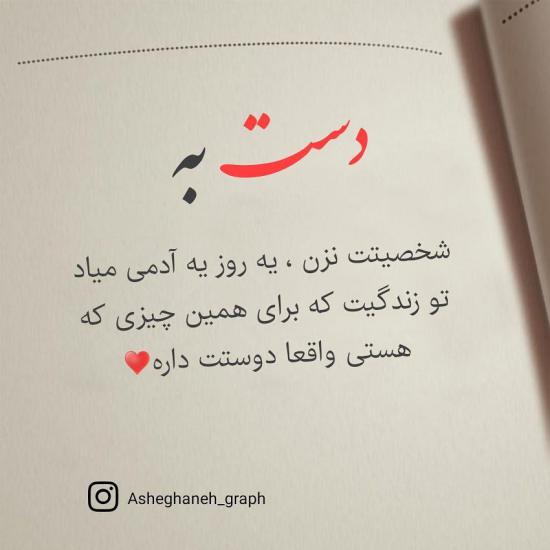 دست به
شخصیتت نزن ، یه روز یه آدمی میاد
تو زندگیت که برای همین چیزی که
هستی واقعا دوستت داره❤️
Asheghaneh_graph